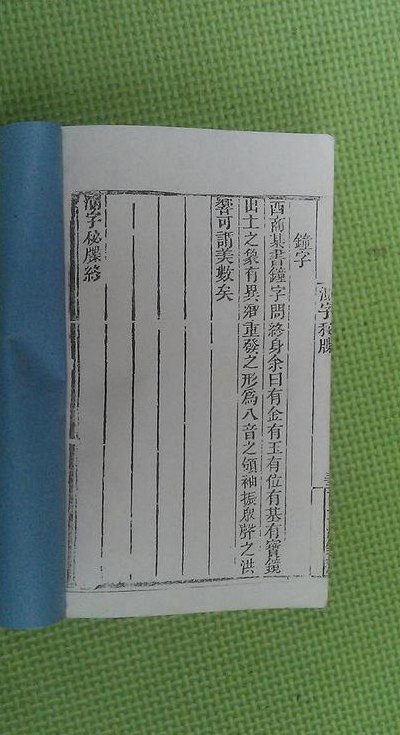 鐘字
西商某書鐘字問終身余曰有金有玉有位有基有寶鏡
出土之象有異宿重發之形為八音之領袖振殷辟之洪
響可謂美數矣
測字秘牒終
測字秘牒